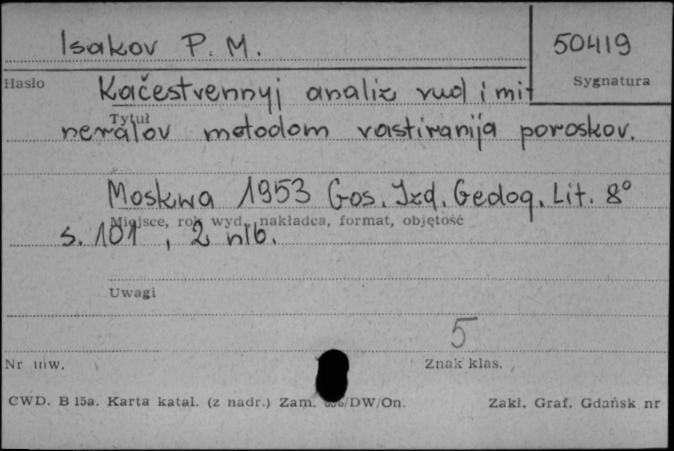 Isakov P. M.
50419
Hasło
Sygnatura
Kačestvennyj analiz rud i mi-
Tytuł
neralov metodom rastiranija poroskov.
Moskwa 1953 Gos. Izd. Geolog. Lit. 8°
Miejsce, rok wyd., nakładca, format, objętość
s. 101, 2 nlb.
Uwagi
5
Nr inw.
Znak klas.
CWD. B 15a. Karta katal. (z nadr.) Zam. /DW/On.
Zakł. Graf. Gdańsk nr